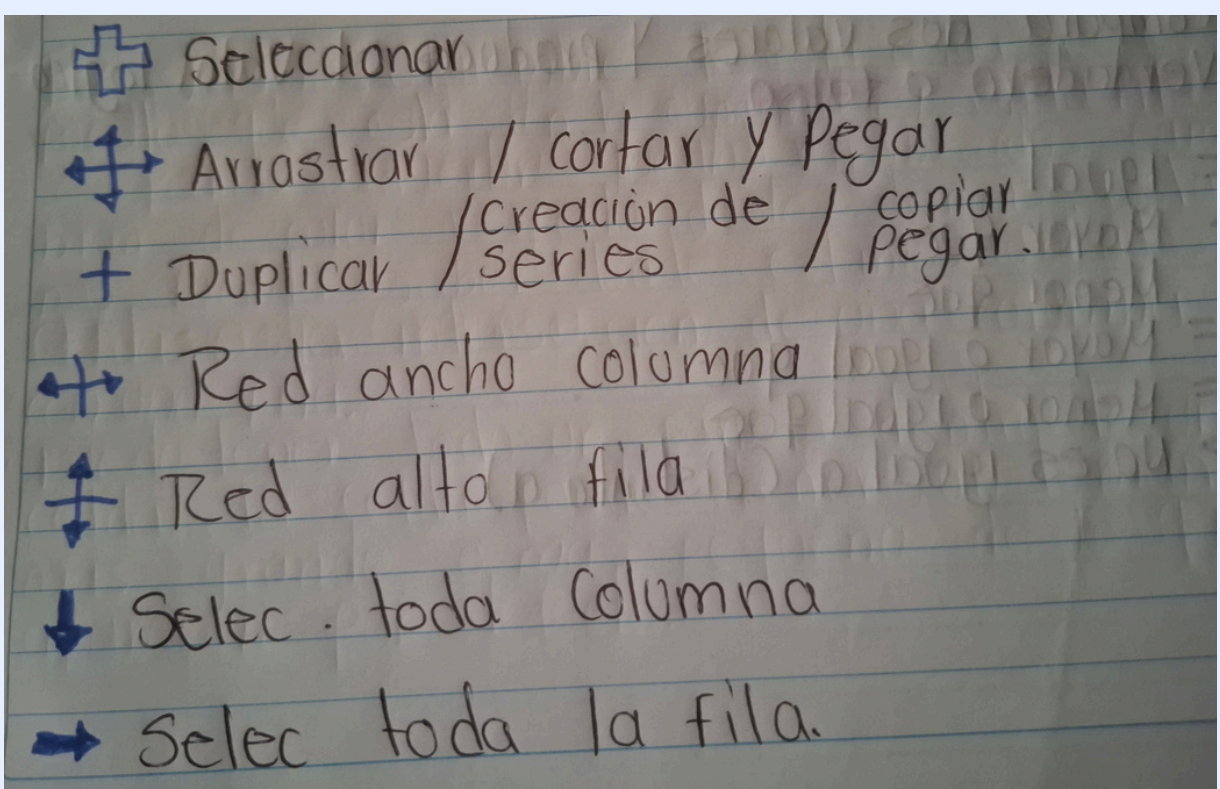 Seleccionar
Arrastrar / cortar y Pegar
Duplicar / creación de series / copiar pegar.
Red ancho columna
Red alto fila
Selec. toda Columna
Selec toda la fila.